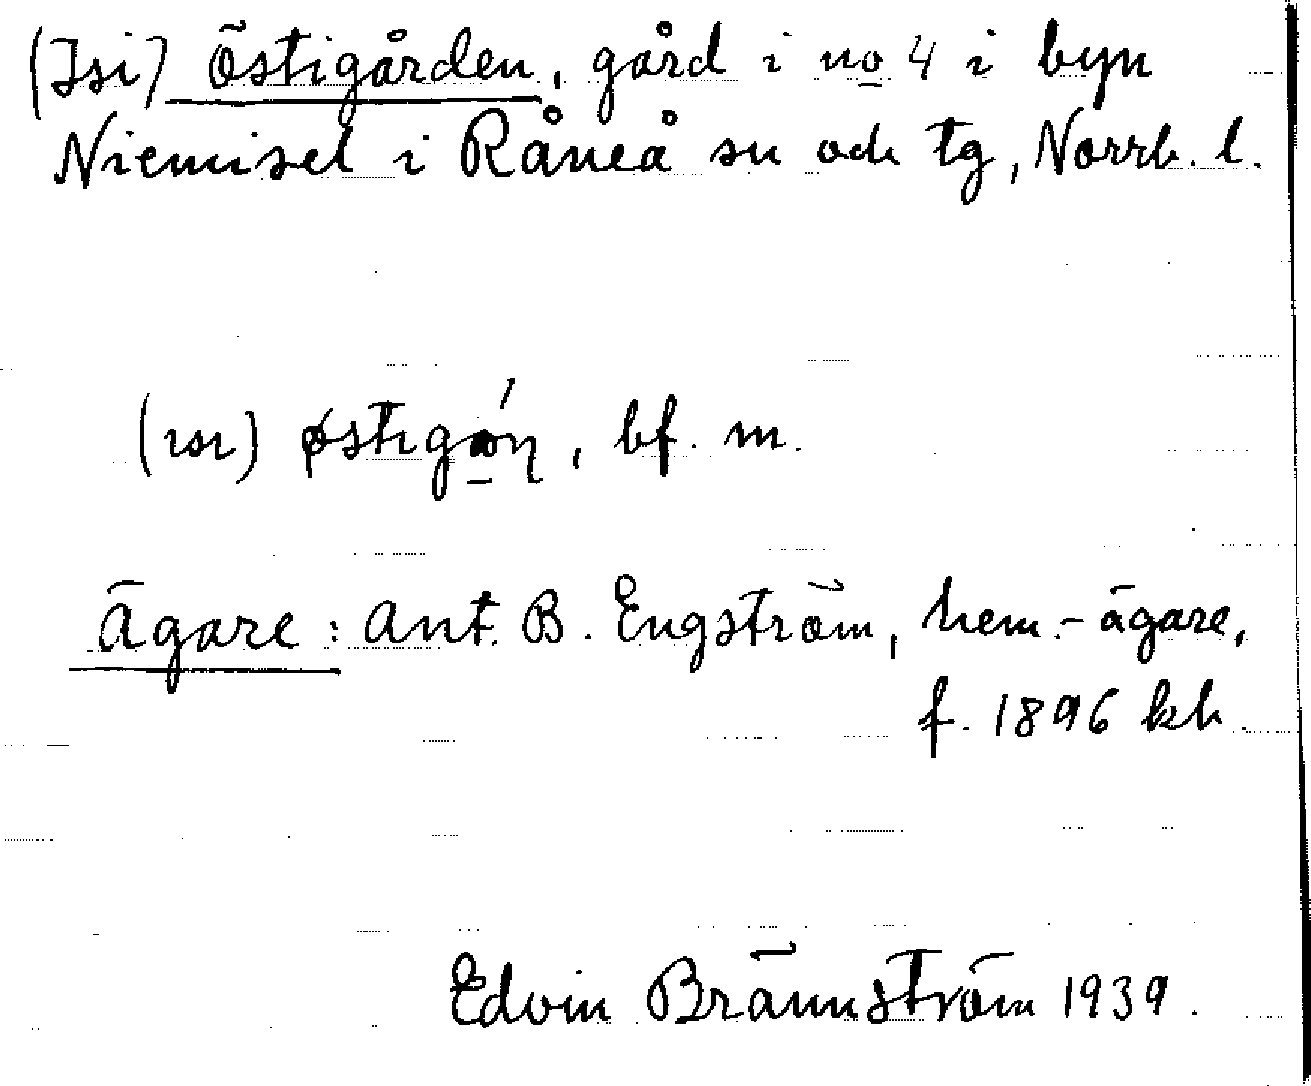 (Isi) Östigården, gård i no 4 i byn
Niemisel i Råneå sn och tg, Norrb. l.
(ısı) østıgá̱ɳ, bf. m.
Ägare: Ant. B. Engström, hem.-ägare,
f. 1896 kh.
Edvin Brännström 1939.